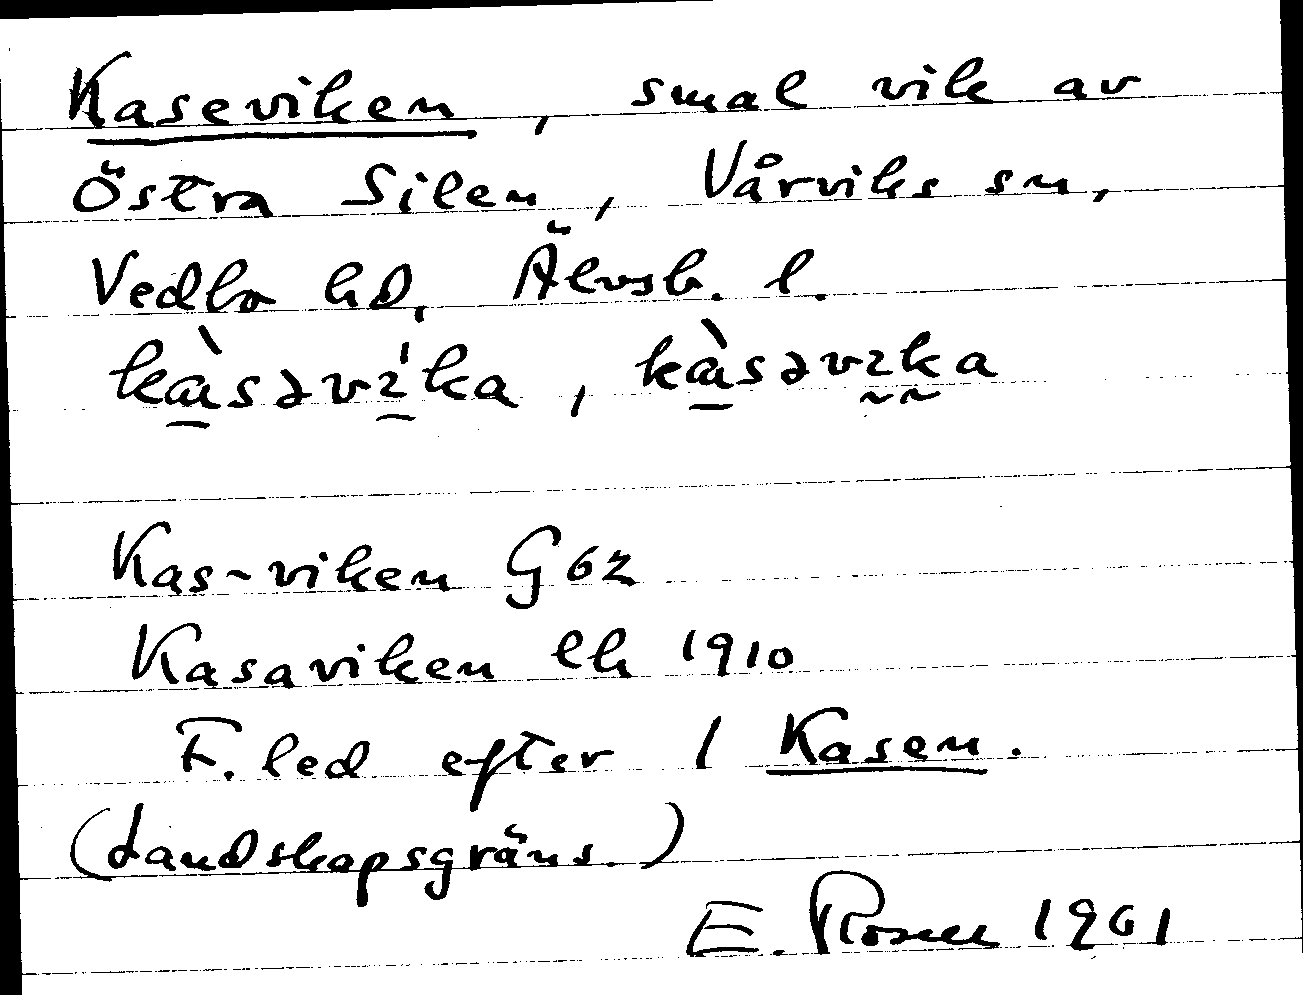 Kaseviken, smal vik av
Östra Silen, Vårviks sn,
Vedbo hd, Älvsb. l.
kàsəvi̍ka, kàsəvika
Kas-viken G62
Kasaviken ek 1910
F. led efter 1 Kasen.
(Landskapsgräns.)
E. Rosell 1961